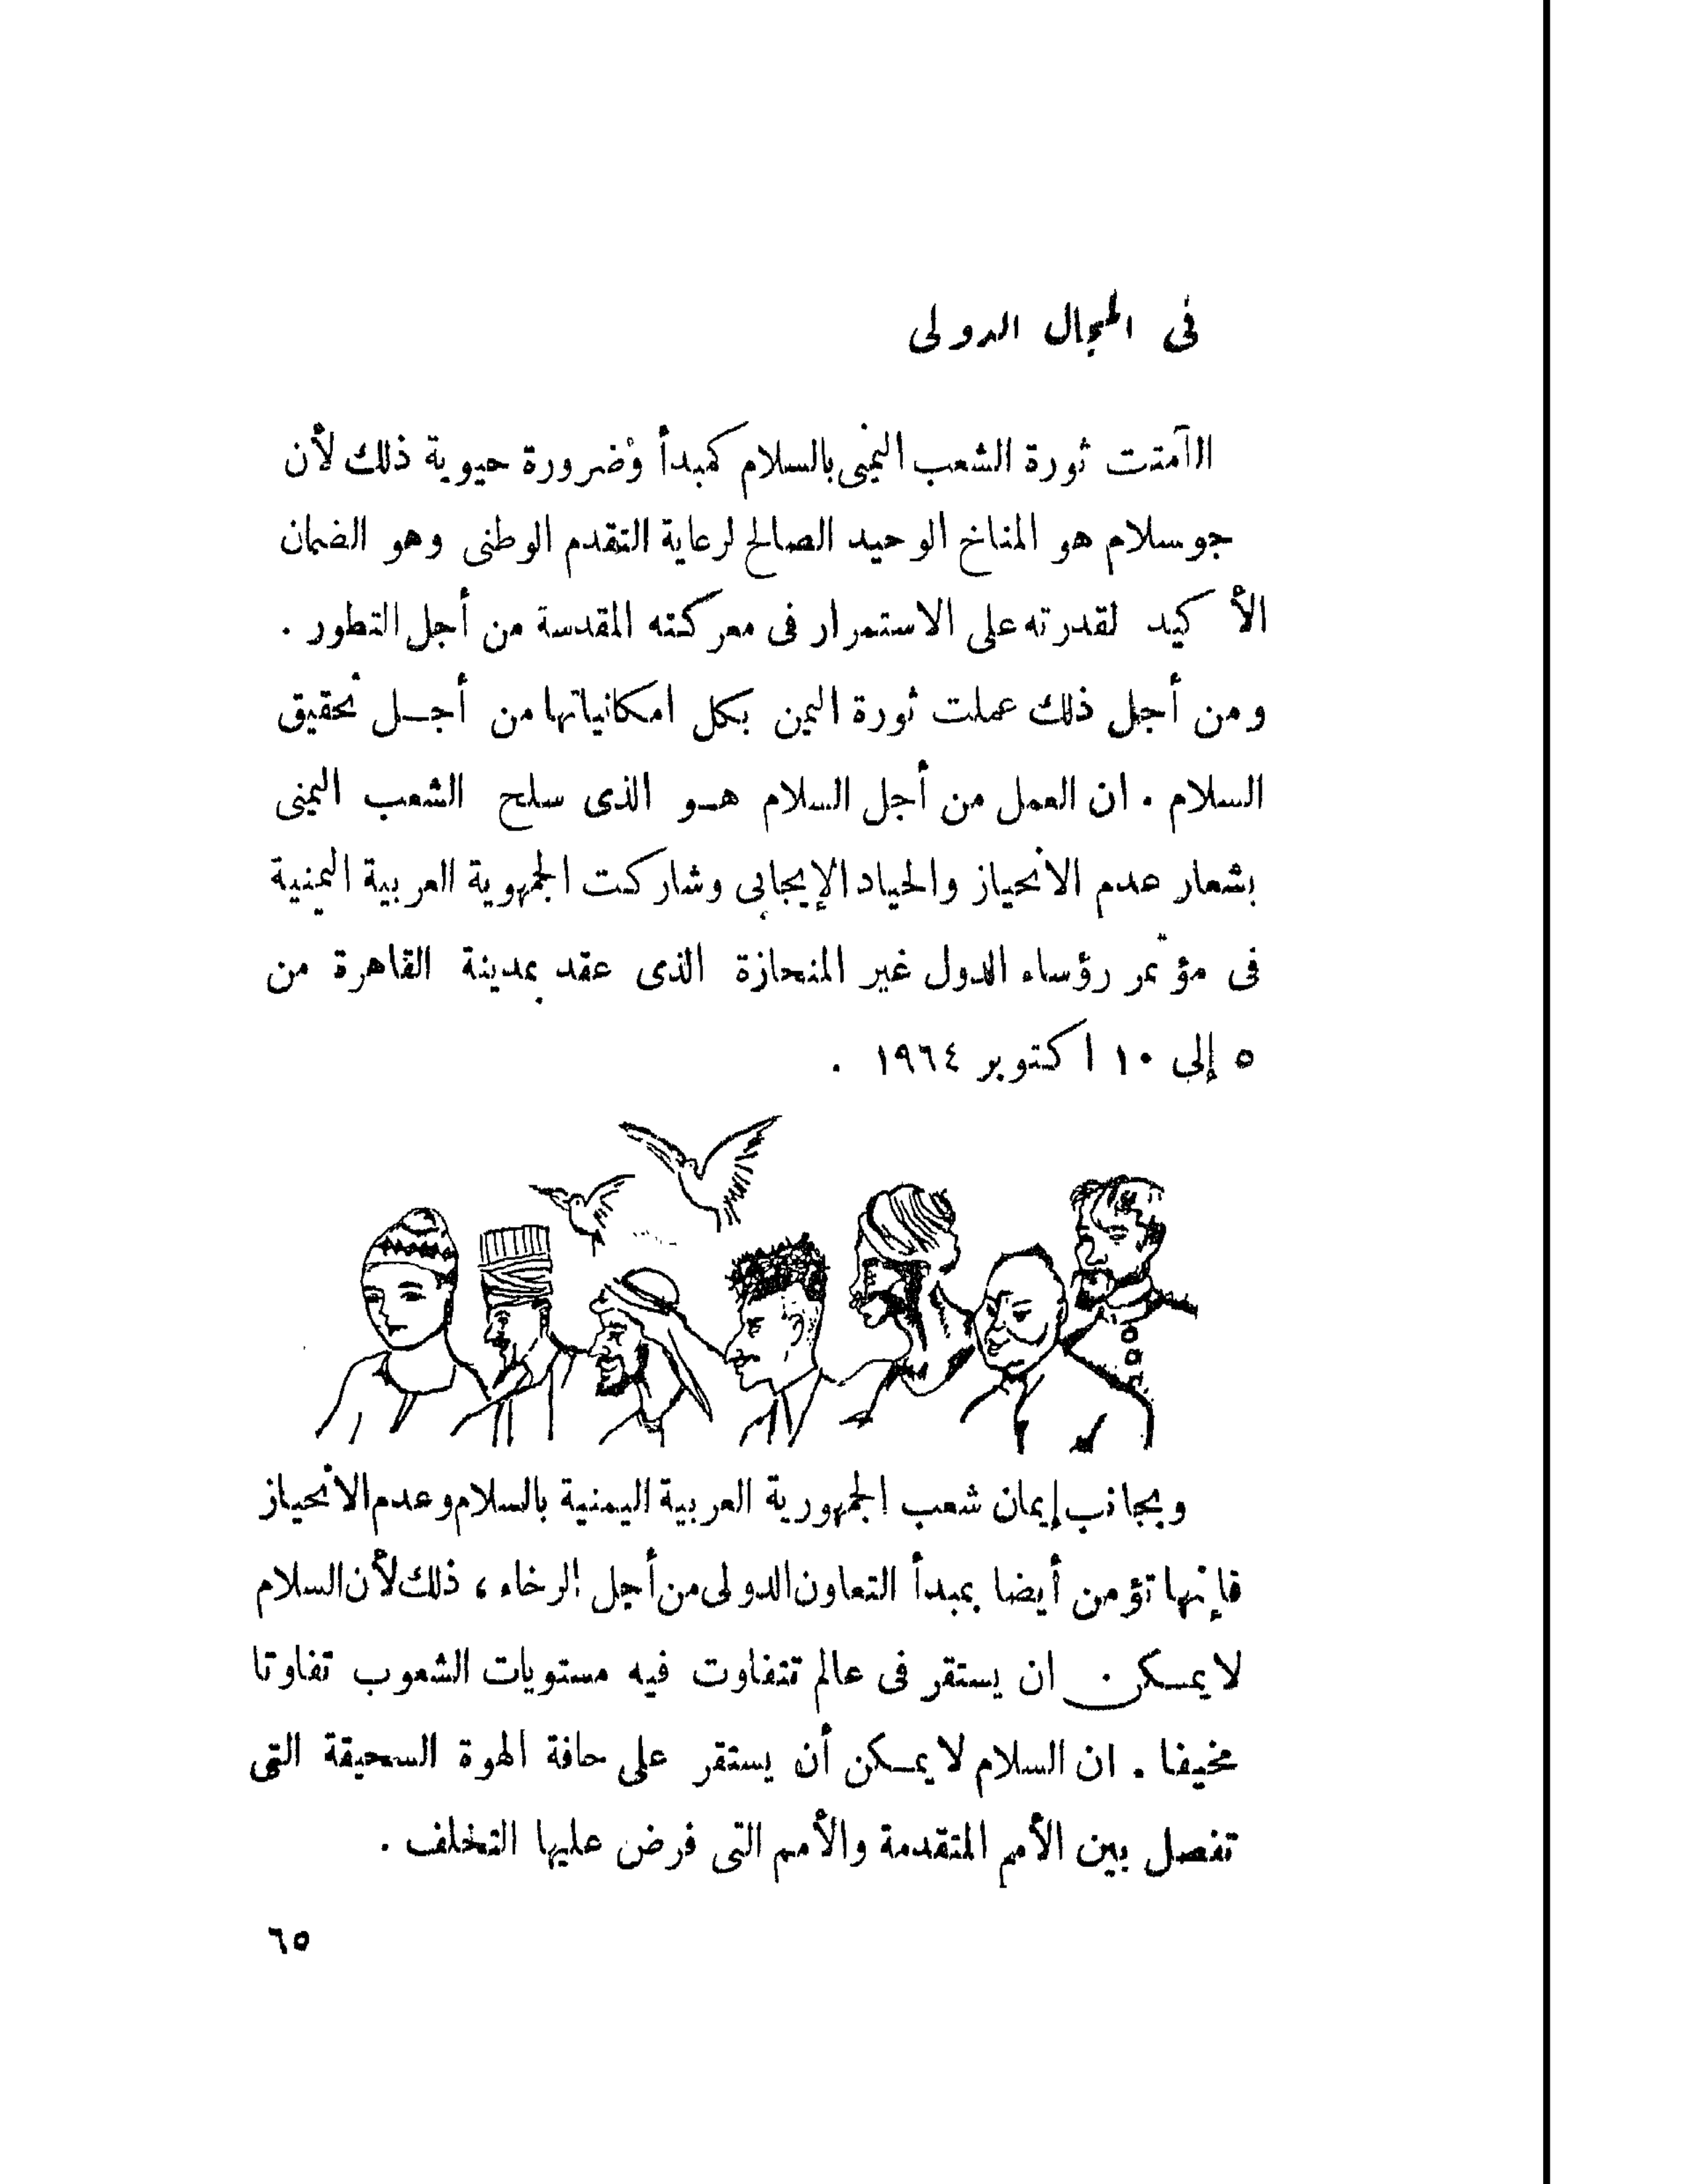 فى المجال الدولى
الآمتت ثورة الشعب اليمنى بالسلام كمبدأ وضرورة حيوية ذلك لأن
جو سلام هو المناخ الوحيد الصالح لرعاية التقدم الوطنى وهو الضمان
الأكيد لقدرته على الاستمرار فى معركته المقدسة من أجل التطور .
ومن أجل ذلك عملت ثورة اليمن بكل امكانياتها من أجـل تحقيق
السلام . ان العمل من أجل السلام هـو الذى سلح الشعب اليمنى
بشعار عدم الانحياز والحياد الإيجابى وشاركت الجمهوية العربية اليمنية
فى مؤتمر رؤساء الدول غير المنحازة الذى عقد بمدينة القاهرة من
٥ إلى ١٠ اكتوبر ١٩٦٤ .
وبجانب إيمان شعب الجمهورية العربية اليمنية بالسلام وعدم الانحياز
فإنها تؤمن أيضا بمبدأ التعاون الدولى من أجل الرخاء ، ذلك لأن السلام
لا يمـكن ان يستقر فى عالم تتفاوت فيه مستويات الشعوب تفاوتا
مخيفا . ان السلام لا يمـكن أن يستقر على حافة الهوة السحيقة التى
تفصل بين الأمم المتقدمة والأمم التى فرض عليها التخلف .
٦٥